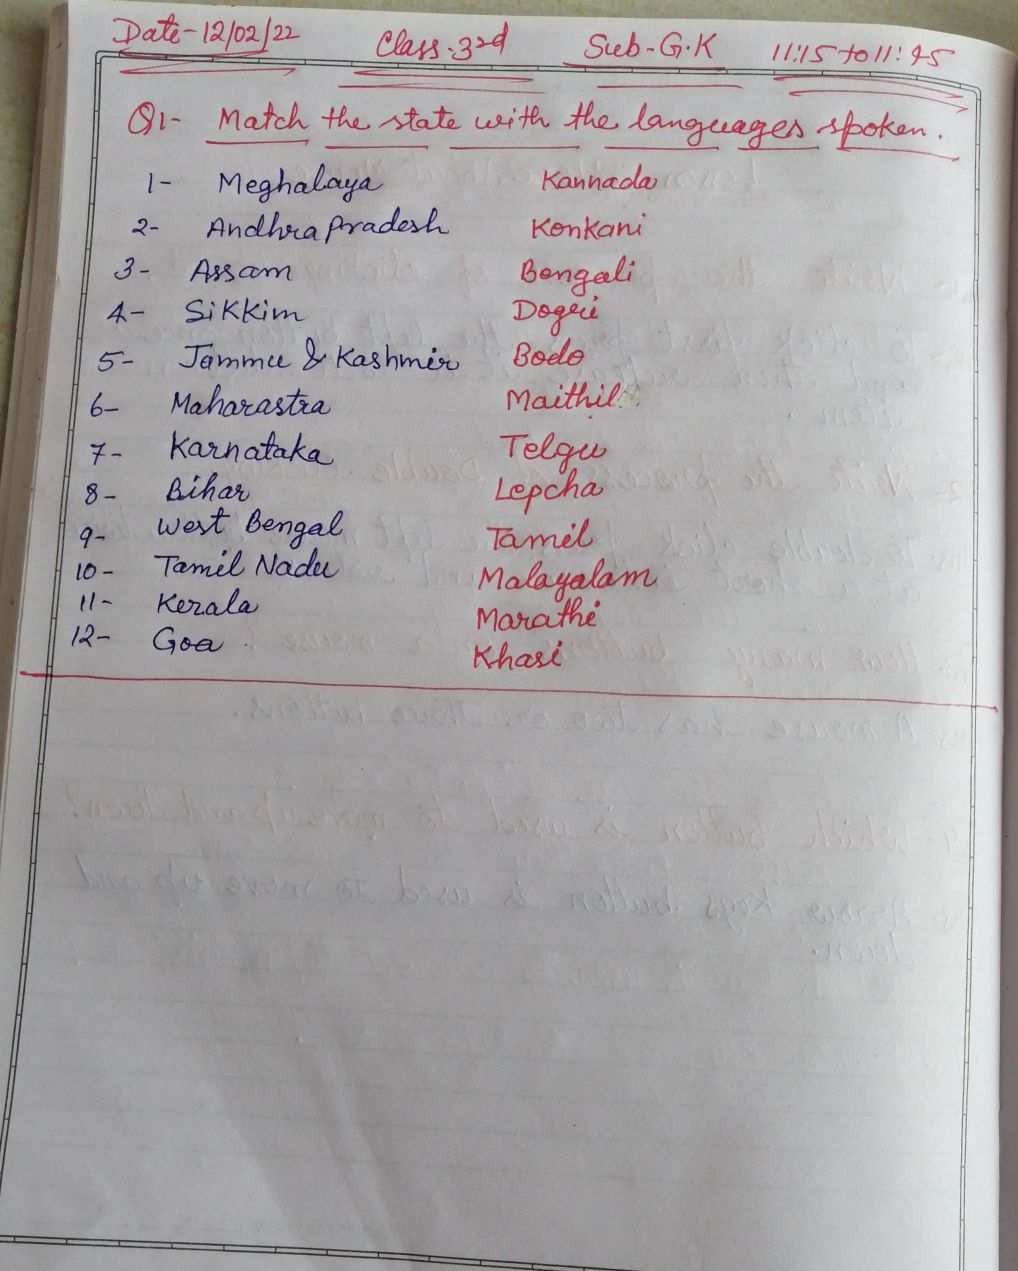 Date-12/02/22 Class-3rd Sub-G.K 11:15 to 11:45
Q1- Match the state with the languages spoken.
1- Meghalaya Kannada
2- Andhra pradesh Konkani
3- Assam Bengali
4- Sikkim Dogri
5- Jammu & Kashmir Bodo
6- Maharastra Maithil
7- Karnataka Telgu
8- Bihar Lepcha
9- West Bengal Tamil
10- Tamil Nadu Malayalam
11- Kerala Marathi
12- Goa Khasi